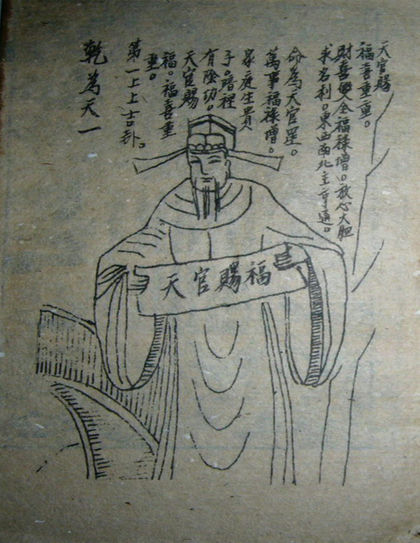 天官賜
福喜重重。
財喜雙全福祿增。放心大胆
求名利。東西南北主亨通。
命為天官星。
萬事福祿增。
家庭生貴
子。暗裡
有陰功。
天官賜
福。福喜重
重。
第一上上吉卦。
乾為天一
天官賜福